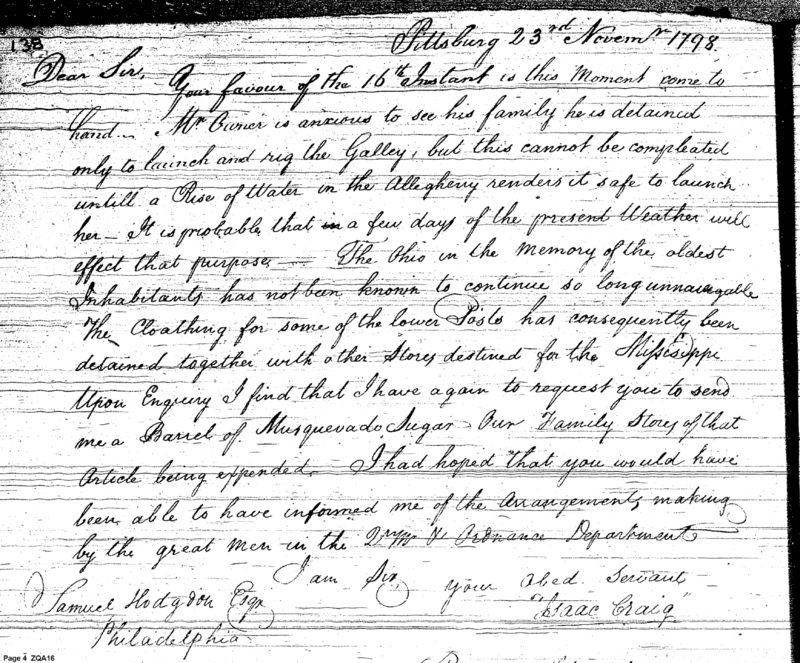 138
Pittsburg 23rd Novemr 1798.
Dear Sir,
Your favour of the 16th Instant is this Moment come to
hand - Mr Turner is anxious to see his family he is detained
only to launch and rig the Galley, but this cannot be compleated
untill a Rise of Water in the Allegheny renders it safe to launch
her - It is probable that in a few days of the present Weather will
effect that purpose - The Ohio in the Memory of the oldest
Inhabitants has not been known to continue so long unnavigable
The Cloathing for some of the lower Posts has consequently been
detained together with other Stores destined for the Missisippi
Upon Enquiry I find that I have again to request you to send
me a Barrel of Musquevado Sugar - Our Family Stores of that
Article being expended. I had hoped that you would have
been able to have informed me of the Arrangements making
by the great Men in the & Ordnance Departments
I am Sir your obed Servant
Isaac Craig
Samuel Hodgdon Esqr
Philadelphia
Page 4 ZQA16